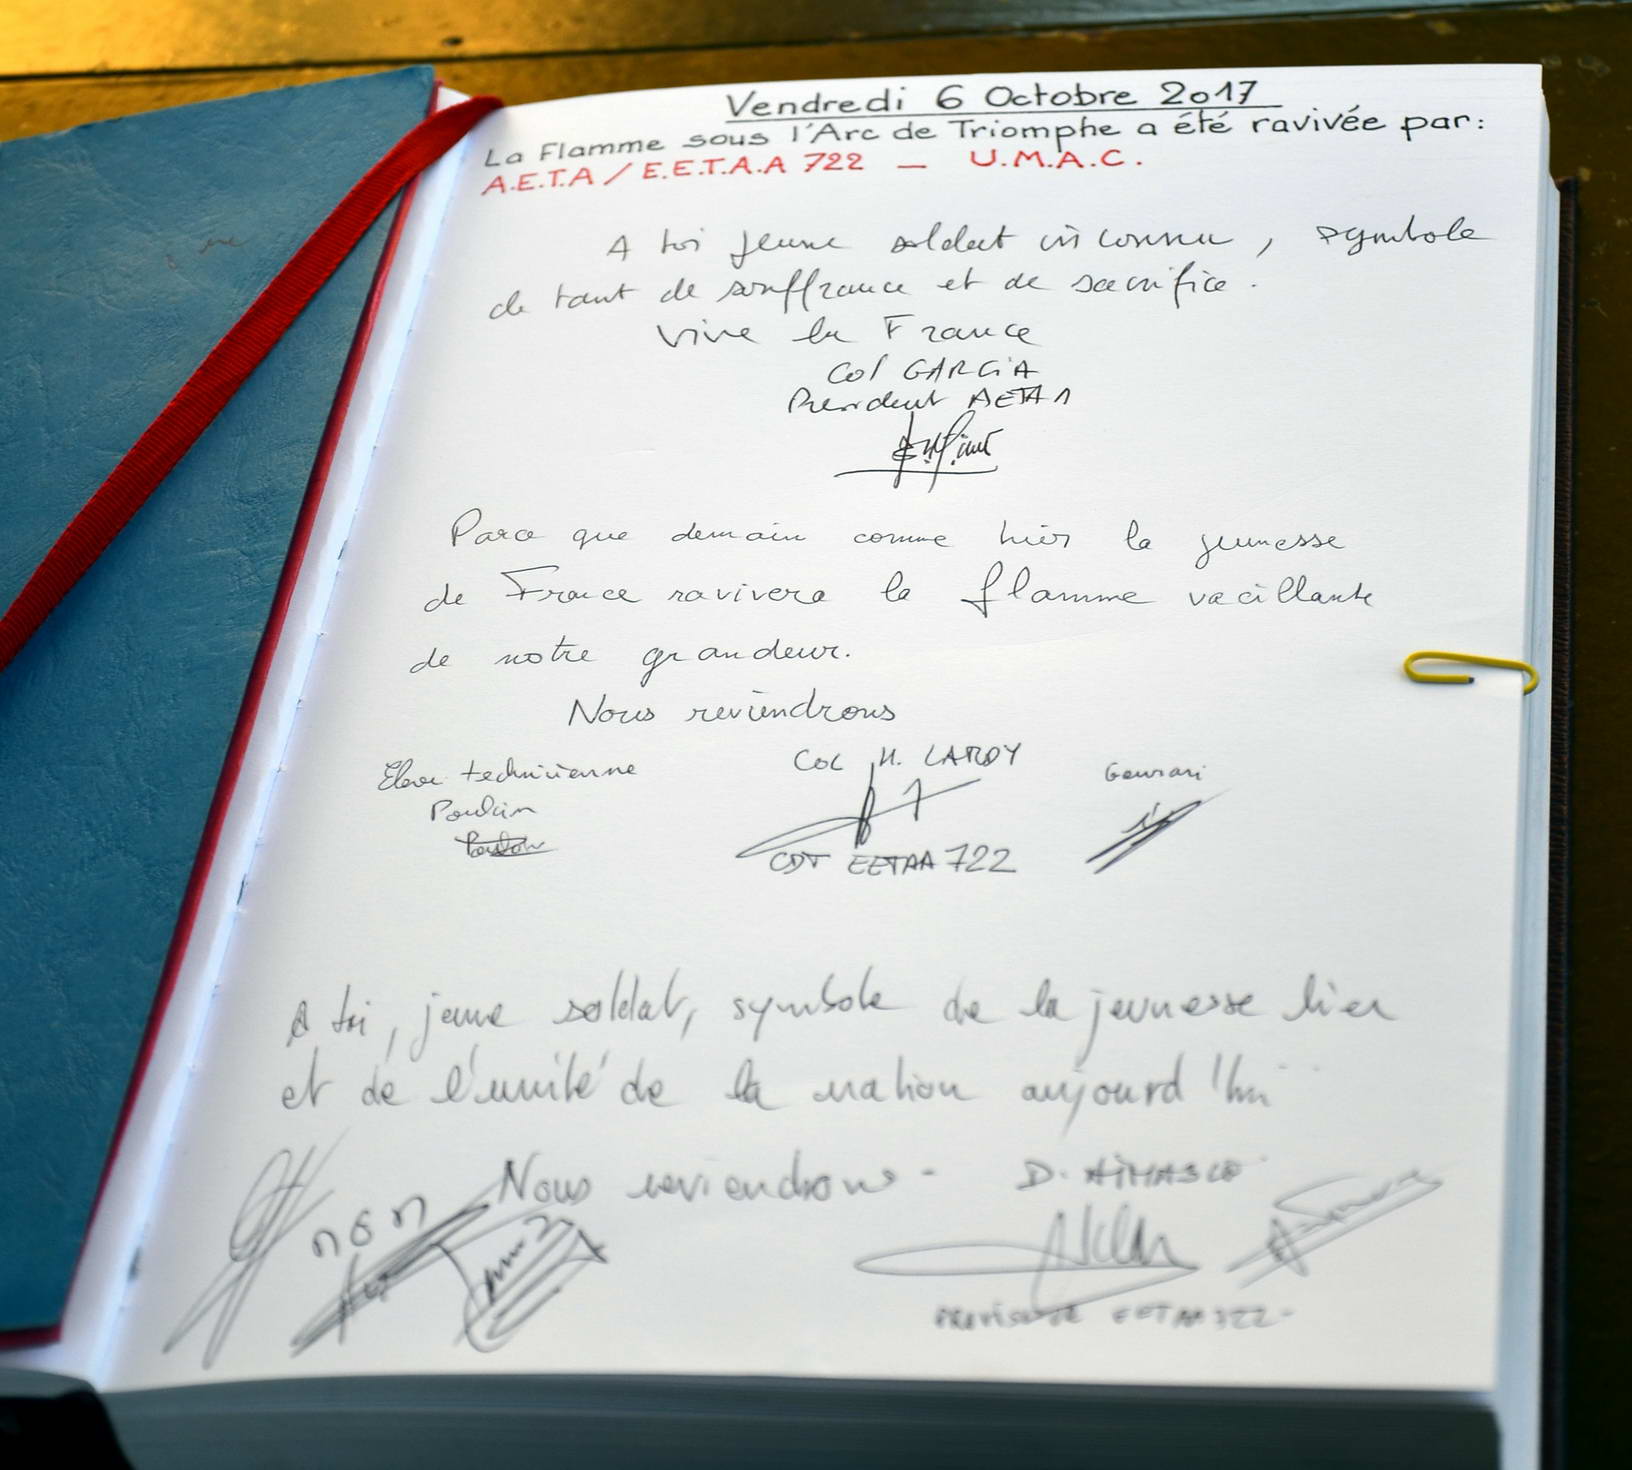 Vendredi 6 Octobre 2017
La Flamme sous l'Arc de Triomphe a été ravivée par :
A.E.T.A / E.E.T.A.A 722 — U.M.A.C.
A toi jeune soldat inconnu, symbole
de tant de souffrance et de sacrifice.
Vive la France
Col GARCIA
President AETA
Parce que demain comme hier la jeunesse
de France ravivera la flamme vacillante
de notre grandeur.
Nous reviendrons
Eleve technicienne
Poulain
Col H. LAROY
CDT EETAA 722
A toi, jeune soldat, symbole de la jeunesse hier
et de l'unité de la nation aujourd'hui
Nous reviendrons -
EETAA 722 -